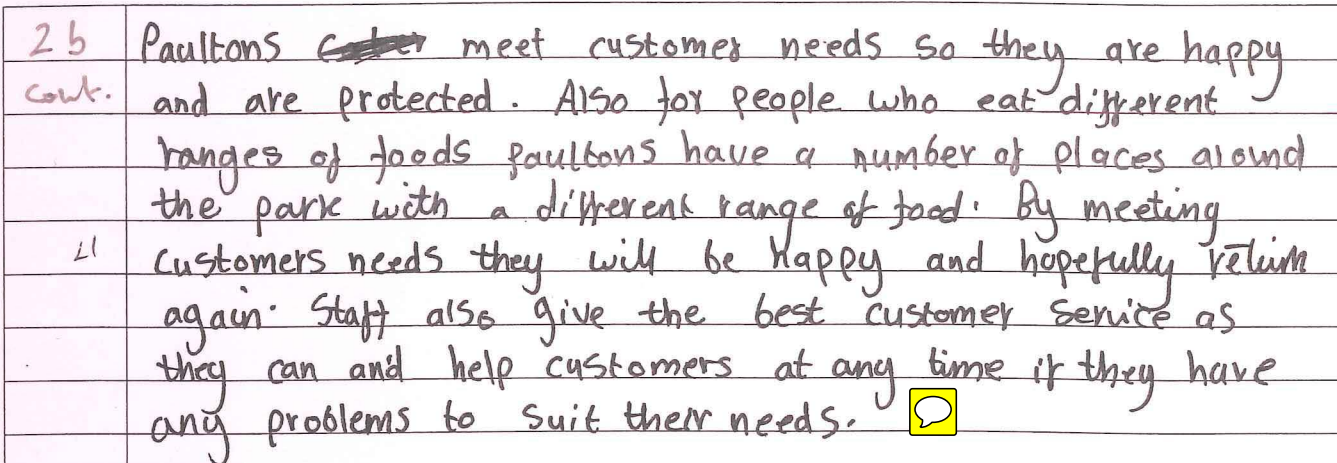 2b Paultons meet customer needs so they are happy
cont. and are protected. Also for people who eat different
ranges of foods Paultons have a number of places around
the park with a different range of food. By meeting
L1 customers needs they will be Happy and hopefully return
again. Staff also give the best customer service as
they can and help customers at any time if they have
any problems to suit their needs.